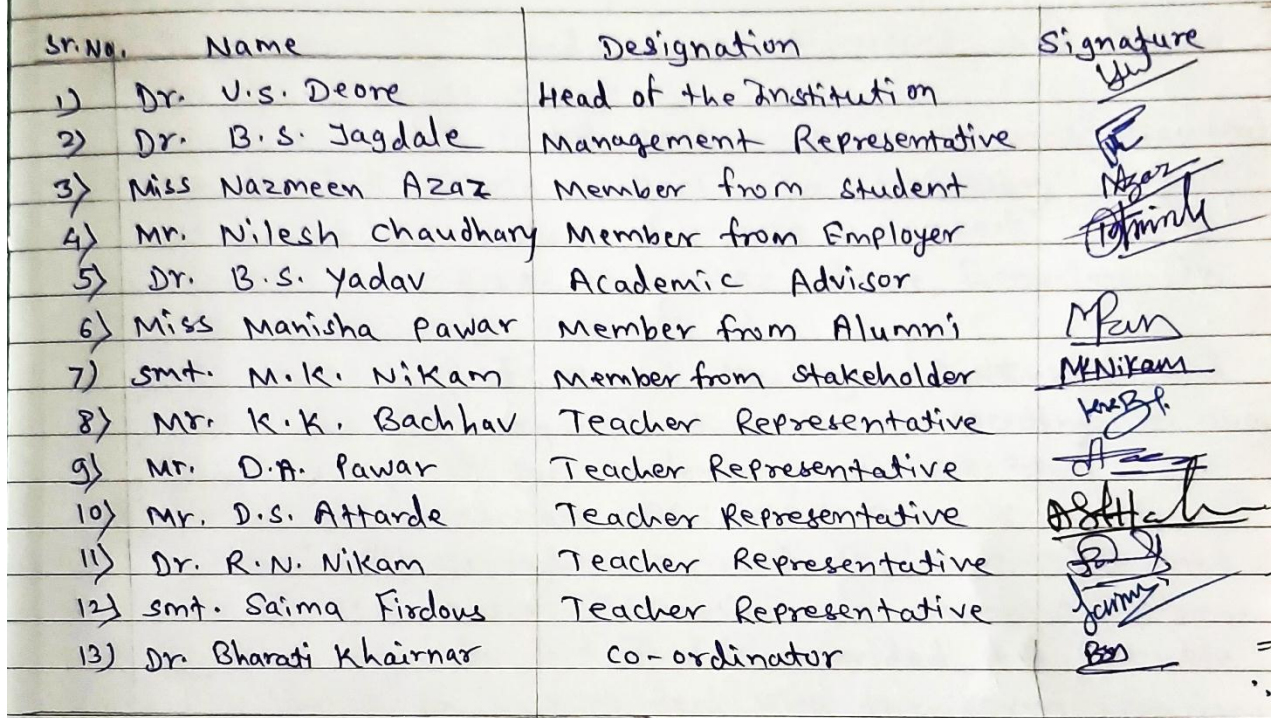 Sr.No. Name Designation Signature
1) Dr. V.S. Deore Head of the Institution
2) Dr. B.S. Jagdale Management Representative
3) Miss Nazmeen Azaz Member from Student Azaz
4) Mr. Nilesh Chaudhary Member from Employer
5) Dr. B.S. Yadav Academic Advisor
6) Miss Manisha Pawar Member from Alumni
7) Smt. M.K. Nikam Member from Stakeholder MKNikam
8) Mr. K.K. Bachhav Teacher Representative
9) Mr. D.A. Pawar Teacher Representative
10) Mr. D.S. Attarde Teacher Representative
11) Dr. R.N. Nikam Teacher Representative
12) Smt. Saima Firdous Teacher Representative
13) Dr. Bharati Khairnar Co-ordinator